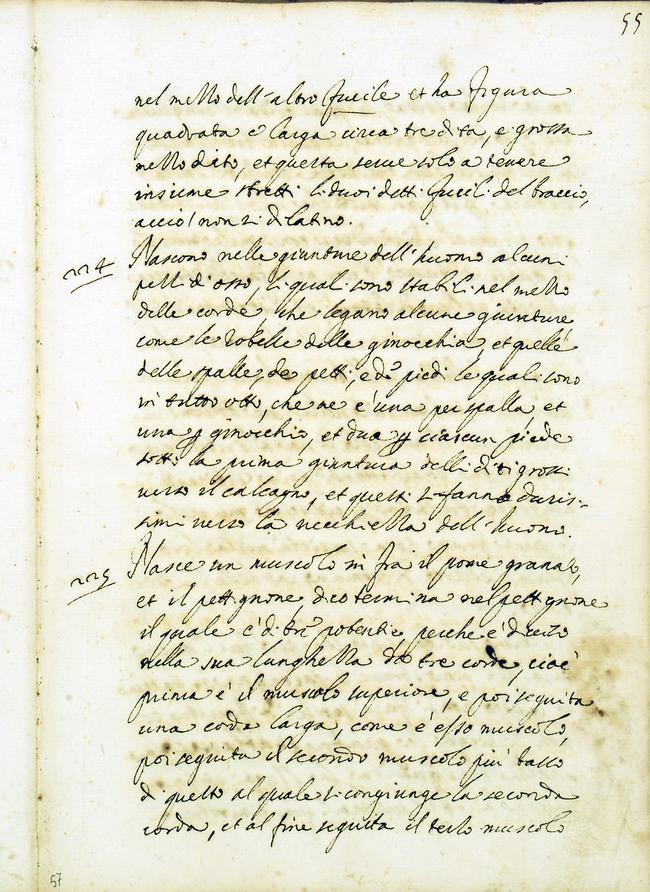 55
nel mezzo dell'altro fucile et ha figura
quadrata è larga circa tre dita, e grossa
mezzo dito, et questa serue solo a tenere
insieme stretti li duoi detti fucili del braccio,
acciò non si dilatino.
224 Nascono nelle giunture dell'huomo alcuni
pezzi di osso, li quali sono stabili nel mezzo
delle corde che legano alcune giunture
come le robelle delle ginocchia, et quelle
delle spalle, de petti, e de piedi le quali sono
in tutto otto, che ne è una per spalla, et
una p ginocchio, et dua p ciascun piede
sotto la prima giuntura delli diti grossi
uerso il calcagno, et questi si fanno duris-
simi uerso la uecchiezza dell'huomo.
225 Nasce un muscolo in frà il pome granato,
et il pettignone, dico termina nel pettignone
il quale è di tre potentie, perche è diuiso
nella sua lunghezza da tre corde, cioè
prima è il muscolo superiore, e poi seguita
una corda larga, come è esso muscolo,
poi seguita il secondo muscolo più basso
di questo al quale si congiunge la seconda
corda, et al fine seguita il terzo muscolo
57